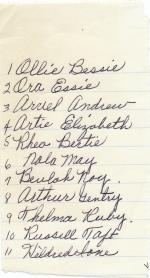 1 Ollie Bessie
2 Ora Essie
3 Arvel Andrew
4 Artie Elizabeth
5 Rhea Bertie
6 Nola May
7 Beulah Roy
8 Arthur Gentry
9 Thelma Ruby.
10 Russell Taft
11 Hildred Ione